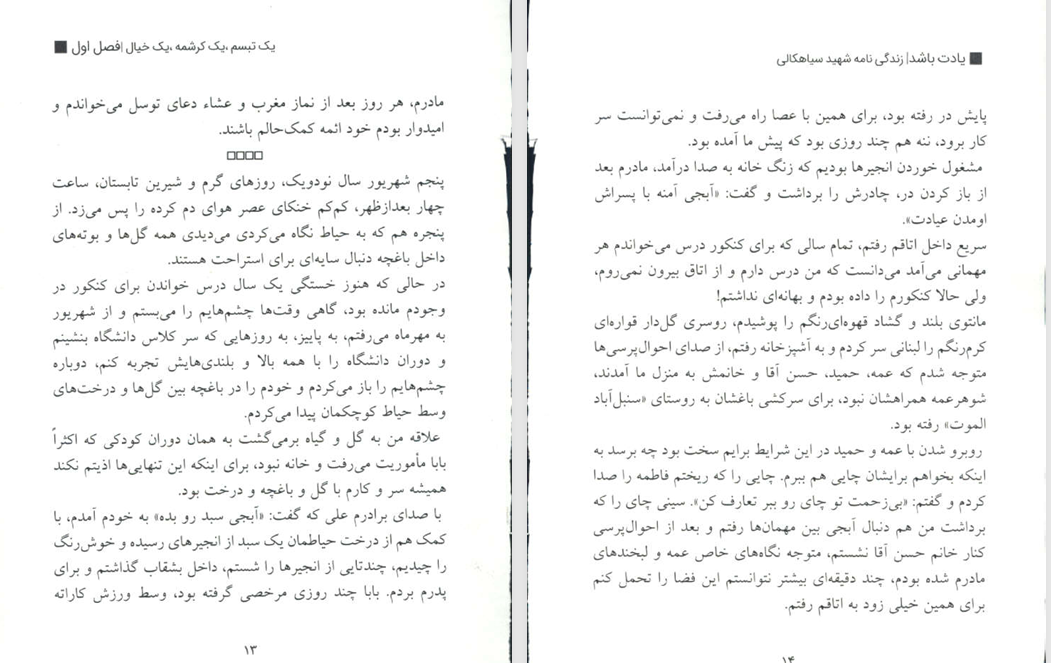 یک تبسم ،یک کرشمه ،یک خیال |فصل اول
مادرم، هر روز بعد از نماز مغرب و عشاء دعای توسل می‌خواندم و
امیدوار بودم خود ائمه کمک‌حالم باشند.
پنجم شهریور سال نودویک، روزهای گرم و شیرین تابستان، ساعت
چهار بعدازظهر، کم‌کم خنکای عصر هوای دم کرده را پس می‌زد. از
پنجره هم که به حیاط نگاه می‌کردی می‌دیدی همه گل‌ها و بوته‌های
داخل باغچه دنبال سایه‌ای برای استراحت هستند.
در حالی که هنوز خستگی یک سال درس خواندن برای کنکور در
وجودم مانده بود، گاهی وقت‌ها چشم‌هایم را می‌بستم و از شهریور
به مهرماه می‌رفتم، به پاییز، به روزهایی که سر کلاس دانشگاه بنشینم
و دوران دانشگاه را با همه بالا و بلندی‌هایش تجربه کنم، دوباره
چشم‌هایم را باز می‌کردم و خودم را در باغچه بین گل‌ها و درخت‌های
وسط حیاط کوچکمان پیدا می‌کردم.
علاقه من به گل و گیاه برمی‌گشت به همان دوران کودکی که اکثراً
بابا مأموریت می‌رفت و خانه نبود، برای اینکه این تنهایی‌ها اذیتم نکند
همیشه سر و کارم با گل و باغچه و درخت بود.
با صدای برادرم علی که گفت: «آبجی سبد رو بده» به خودم آمدم، با
کمک هم از درخت حیاطمان یک سبد از انجیرهای رسیده و خوش‌رنگ
را چیدیم، چندتایی از انجیرها را شستم، داخل بشقاب گذاشتم و برای
پدرم بردم. بابا چند روزی مرخصی گرفته بود، وسط ورزش کاراته
۱۳
یادت باشد| زندگی نامه شهید سیاهکالی
پایش در رفته بود، برای همین با عصا راه می‌رفت و نمی‌توانست سر
کار برود، ننه هم چند روزی بود که پیش ما آمده بود.
مشغول خوردن انجیرها بودیم که زنگ خانه به صدا درآمد، مادرم بعد
از باز کردن در، چادرش را برداشت و گفت: «آبجی آمنه با پسراش
اومدن عیادت».
سریع داخل اتاقم رفتم، تمام سالی که برای کنکور درس می‌خواندم هر
مهمانی می‌آمد می‌دانست که من درس دارم و از اتاق بیرون نمی‌روم،
ولی حالا کنکورم را داده بودم و بهانه‌ای نداشتم!
مانتوی بلند و گشاد قهوه‌ای‌رنگم را پوشیدم، روسری گل‌دار قواره‌ای
کرم‌رنگم را لبنانی سر کردم و به آشپزخانه رفتم، از صدای احوال‌پرسی‌ها
متوجه شدم که عمه، حمید، حسن آقا و خانمش به منزل ما آمدند،
شوهرعمه همراهشان نبود، برای سرکشی باغشان به روستای «سنبل‌آباد
الموت» رفته بود.
روبرو شدن با عمه و حمید در این شرایط برایم سخت بود چه برسد به
اینکه بخواهم برایشان چایی هم ببرم. چایی را که ریختم فاطمه را صدا
کردم و گفتم: «بی‌زحمت تو چای رو ببر تعارف کن». سینی چای را که
برداشت من هم دنبال آبجی بین مهمان‌ها رفتم و بعد از احوال‌پرسی
کنار خانم حسن آقا نشستم، متوجه نگاه‌های خاص عمه و لبخندهای
مادرم شده بودم، چند دقیقه‌ای بیشتر نتوانستم این فضا را تحمل کنم
برای همین خیلی زود به اتاقم رفتم.
۱۴